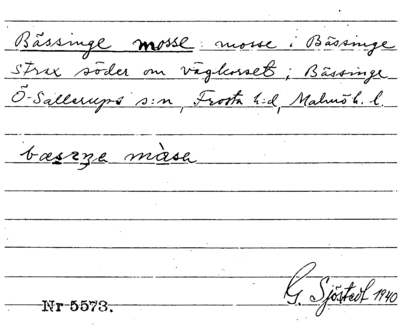 Bässinge mosse: mosse i Bässinge
strax söder om vägkorset i Bässinge
Ö. Sallerups s:n, Frosta h:d, Malmöh. l.
bæsɪŋe màsa
G. Sjöstedt 1940
Nr 5573.